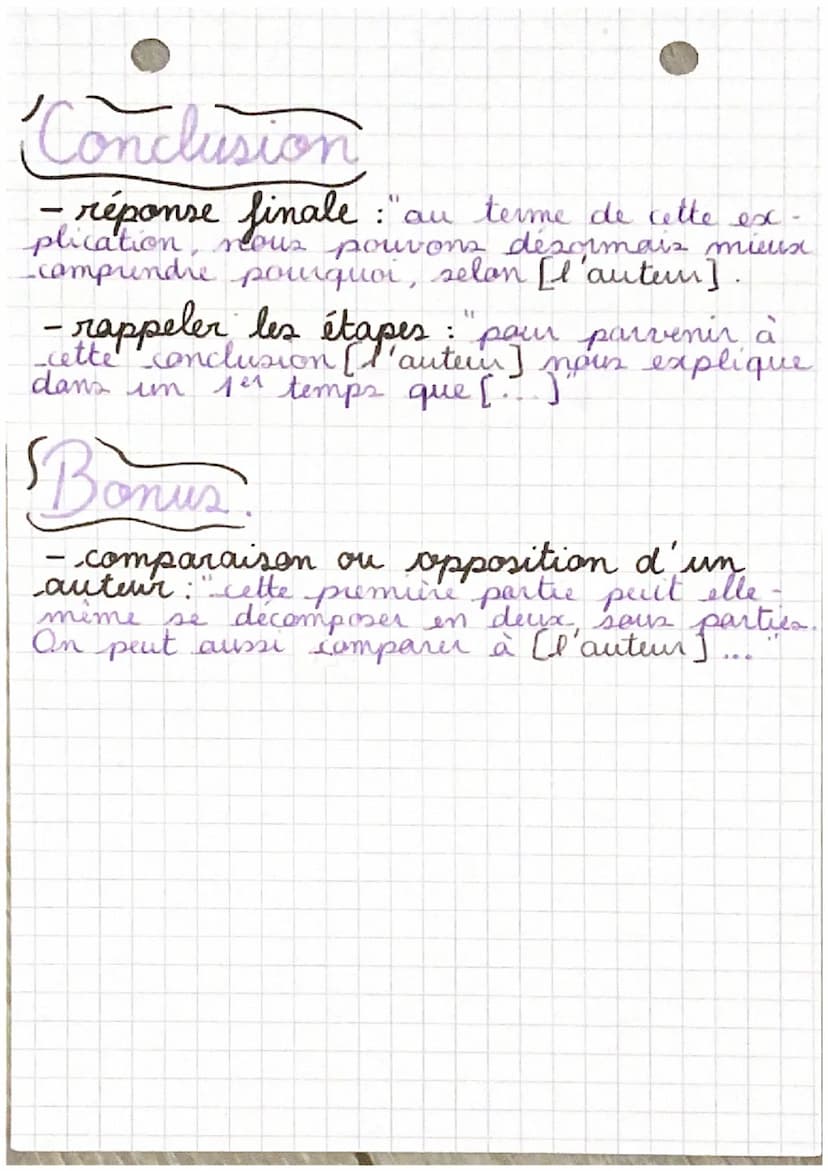 Conclusion
- réponse finale : "au terme de cette ex-
plication, nous pouvons désormais mieux
comprendre pourquoi, selon [l'auteur].
- rappeler les étapes : "pour parvenir à
cette conclusion [l'auteur] nous explique
dans un 1er temps que [...]"
Bonus.
- comparaison ou opposition d'un
auteur : "cette première partie peut elle-
même se décomposer en deux sous parties.
On peut aussi comparer à [l'auteur] ... "